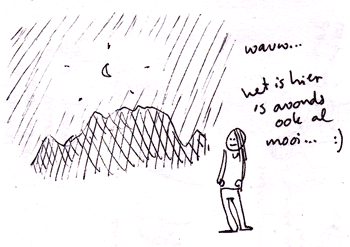 wauw...
het is hier
's avonds
ook al
mooi... :)